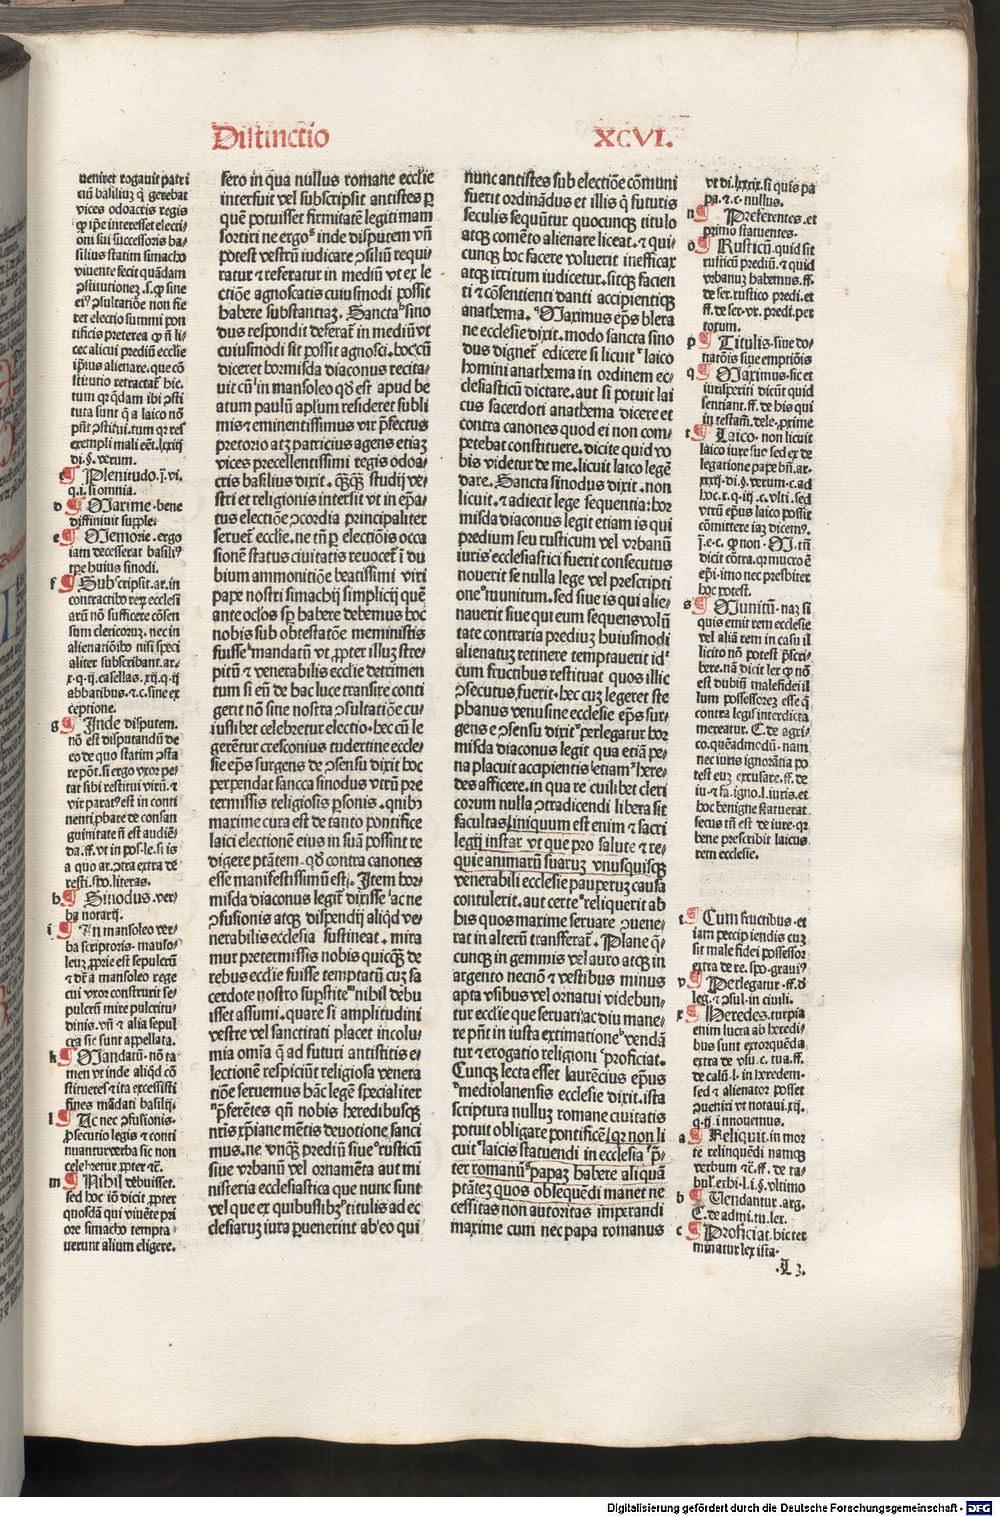 Distinctio XCVI.
ueniret rogauit patri
ciũ basiliuʒ q̃ gerebat
vices odoacris regis
ꝙ ip̃e interesset electi⸗
oni sui successoris ba⸗
silius statim simacho
viuente fecit quãdam
ei⁹ ꝯsultatiõe non fie
ret electio summi pon
tificis preterea ꝙ ñ li⸗
cec alicui prediũ ecclie
ip̃ius alienare. que cõ
stitutio retractat᷑ hic.
tum qꝛ q̃dam ibi ꝯsti
tuta sunt q̃ a laico nõ
exempli mali eẽt. lxxiij
di. §. verum.
¶ Plenitudo. j̃. vi.
q. i. si omnia.
d ¶ Maxime. bene
diffiniuit supple.
e ¶ Memorie. ergo
iam decesserat basili⁹
tp̃e huius sinodi.
f ¶ Subscripsit. ar. in
arũ nõ sufficere cõsen
sum clericoruʒ. nec in
alienatiõibꝰ nisi speci
aliter subscribant. ar.
x. q. ij. casellas. xij. q. ij
abbatibus. ⁊ .c. sine ex
ceptione.
g ¶ Inde disputem.
nõ est disputandũ de
eo de quo statim ꝯsta
re põt. si ergo vxor pe⸗
tat sibi restitui virũ. ⁊
vir parat⁹ est in conti
nenti ꝓbare de consan
guinitate ñ est audiẽ⸗
da. ff. vt in pos. le. si is
a quo ar. ꝯtra extra dẽ
resti. spo. literas.
h ¶ Sinodus. ver⸗
ba notarij.
i ¶ In mansoleo ver⸗
ba scriptoris. mauso⸗
leuʒ ꝓprie est sepulcrũ
⁊ dr̃ a mansoleo rege
cui vxor construxit se⸗
pulcrum mire pulcritu⸗
dinis. vñ ⁊ alia sepul
cra sic sunt appellata.
k ¶ Mandatũ. nõ ta
men vt inde aliqd̃ cõ
stitueres ⁊ ita excessisti
fines mãdati basilij.
l ¶ Ac nec ꝯfusionis.
ꝓsecutio legis ⁊ conti
nuantur verba sic non
celebretur ꝓpter ⁊c̃.
m ¶ Nihil debuisset.
sed hoc iõ dicit ꝓpter
quosdã qui viuẽte pri
ore simacho tempta⸗
uerunt alium eligere.
sero in qua nullus romane ecclie
interfuit vel subscripsit antistes ꝑ
quẽ potuisset firmitatẽ legitimam
sortiri ne ergo inde disputem vñ
potest vestrũ iudicare ꝯsiliũ requi⸗
ratur ⁊ referatur in mediũ vt ex le
ctiõe agnoscatis cuiusmodi possit
habere substantiaʒ. Sancta sino
dus respondit deferat᷑ in mediũ vt
cuiusmodi sit possit agnosci. hoc cũ
diceret hormisda diaconus recita⸗
uit cũ in mansoleo qd̃ est apud be
atum paulũ apl̃um resideret subli
mis ⁊ eminentissimus vir p̃fectus
pretorio atʒ patricius agens etiaʒ
vices precellentissimi regis odoa⸗
cris basilius dixit. qꝙꝙ studij ve⸗
stri et religionis intersit vt in ep̃a⸗
tus electiõe ꝯcordia principaliter
seruet᷑ ecclie. ne tñ ꝑ electiõis occa
sionẽ status ciuitatis reuocet᷑ ĩ du
bium ammonitiõe beatissimi viri
pape nostri simachij simplicij quẽ
ante oc̃los sꝑ habere debemus hoc
nobis sub obtestatõe meministis
fuisse mandatũ vt ꝓpter illuʒ stre⸗
pitũ ⁊ venerabilis ecclie detrimen
tum si eũ de hac luce transire conti
gerit nõ sine nostra ꝯsultatiõe cu⸗
iuslibet celebretur electio. hec cũ le
gerẽtur cresconius tudertine eccle⸗
sie ep̃s surgens de ꝯsensu dixit hoc
perpendat sancca sinodus vtrũ pre
termissis religiosis ꝑsonis. qnibꝰ
maxime cura est de tanto pontifice
laici electionẽ eius in suã possint re
digere ptãtem. qd̃ contra canones
esse manifestissimũ est. Item hor⸗
misda diaconus legit dixisse ac ne
ꝯfusionis atqꝫ dispendij aliqd̃ ve⸗
nerabilis ecclesia sustineat. mira
mur pretermissis nobis quicqʒ de
rebus ecclie fuisse temptatũ cuʒ sa
cerdote nostro suꝑstite nihil debu
isset assumi. quare si amplitudini
vestre vel sanctitati placet incolu⸗
mia om̃ia q̃ ad futuri antistitis e⸗
lectionẽ respiciũt religiosa venera
tiõe seruemus hãc legẽ specialiter
p̃ferẽtes qñ nobis heredibusqꝫ
nr̃is xp̃iane mẽtis deuotione sanci
mus. ne vnqʒ prediũ siue rusticũ
siue vrbanũ vel ornamẽta aut mi
nisteria ecclesiastica que nunc sunt
vel que ex quibuslibʒ titulis ad ec
clesiaruʒ iura ꝑuenerint ab eo qui
nunc antistes sub electiõe cõmuni
fuerit ordinãdus et illis q̃ futuris
seculis sequũtur quocunqꝫ titulo
atqꝫ comẽto alienare liceat. ⁊ qui⸗
cunqꝫ hoc facere voluerit inefficax
atqꝫ irritum iudicetur. sitqꝫ facien
ti ⁊ cõsentienti danti accipientiqꝫ
anathema. Maximus ep̃s blera
ne ecclesie dixit. modo sancta sino
dus dignet᷑ edicere si licuit laico
homini anathema in ordinem ec⸗
clesiasticũ dictare. aut si potuit lai
cus sacerdoti anathema dicere et
contra canones quod ei non com⸗
petebat constituere. dicite quid vo
bis videtur de me. licuit laico legẽ
dare. Sancta sinodus dixit. non
licuit. ⁊ adiecit lege sequentia: hor
misda diaconus legit etiam is qui
predium seu rusticum vel vrbanũ
iuris ecclesiastici fuerit consecutus
nouerit se nulla lege vel prescripti
one munitum. sed siue is qui alie⸗
nauerit siue qui eum sequens volũ
tate contraria prediuʒ huiusmodi
alienatuʒ retinere temptauerit id
cum fructibus restituat quos illic
ꝯsecutus fuerit. hec cuʒ legeret ste
phanus venusine ecclesie ep̃s sur⸗
gens e ꝯsensu dixit perlegatur hor
misda diaconus legit qua etiã pe⸗
na placuit accipientis etiam here⸗
des afficere. in qua re cuilibet cleri
corum nulla ꝯtradicendi libera sit
facultas iniquum est enim ⁊ sacri
legij instar vt que pro salute ⁊ re⸗
quie animarũ suaruʒ vnusquisqꝫ
venerabili ecclesie pauperuʒ causa
contulerit. aut certe reliquerit ab
his quos maxime seruare ꝯuene⸗
rat in alterũ transferat᷑. Plane q̃⸗
cunqꝫ in gemmis vel auro atqꝫ in
argento necnõ ⁊ vestibus minus
apta vsibus vel ornatui videbun⸗
tur ecclie que seruari ac diu mane⸗
re pñt in iusta extimatione vendã
tur ⁊ erogatio religioni proficiat.
Cunqꝫ lecta esset laurẽcius ep̃us
mediolanensis ecclesie dixit. ista
scriptura nulluʒ romane ciuitatis
potuit obligare pontificẽ qꝛ non li
cuit laicis statuendi in ecclesia p̃⸗
ter romanũ papaʒ habere aliquã
ptãteʒ quos obsequẽdi manet ne
cessitas non autoritas imperandi
maxime cum nec papa romanus
vt di. lxxix. si quis pa
pa. ⁊ .c. nullus.
n ¶ Preferentes. et
primo statuentes.
o ¶ Rusticũ. quid sit
rusticũ prediũ. ⁊ quid
vrbanuʒ habemus. ff.
de ser. rustico predi. et
ff. de ser. vr. predi. per
totum.
p ¶ Titulis. siue do⸗
natõis siue emptiõis
q ¶ Maximus. sic et
iurisperiti dicũt quid
sentiant. ff. de his qui
in testam̃. dele. ꝓxime
r ¶ Laico. non licuit
laico iure suo sed ex de
legatione pape bñ. ar.
xxij di. §. verum. c. ad
hoc. x. q. iij. c. vlti. sed
vtrũ ep̃us laico possit
cõmittere iaʒ dicem⁹.
j̃. e. c. ꝙ non. M. tñ
dicit cõtra. qꝛ mucro ẽ
ep̃i. imo nec presbiter
hoc potest.
s ¶ Munitũ. naʒ si
quis emit rem ecclesie
vel aliã rem in casu il
licito nõ potest p̃scri⸗
bere. nã dicit lex ꝙ nõ
est dubiũ malefidei il
lum possessoreʒ esse q̃
contra legis interdicta
mercatur. C. de agri⸗
co. quẽadmodũ. nam
nec iuris ignorãtia po
test euʒ excusare. ff. de
iu. ⁊ fa. igno. l. iuris. et
hoc benigne statuerat
secus tñ est de iure. qꝛ
bene prescribit laicus
rem ecclesie.
t ¶ Cum fructibus. et
iam percipiendis cuʒ
sit male fidei possessor
extra de re. spo. grauis
v ¶ Perlegatur. ff. d̃
leg. ⁊ ꝯsul. in ciuili.
x ¶ Heredes. turpia
enim lucra ab heredi⸗
bus sunt extorquẽda
extra de vsu. c. tua. ff.
de calũ. l. in heredem.
sed ⁊ alienator posset
ꝯueniri vt notaui. xij.
q. ij. innouemus.
a ¶ Reliquit. in mor
te relinquẽdi namqꝫ
verbum ⁊c̃. ff. de ta⸗
bul. exhi. l. i. §. vltimo
b ¶ Uendantur. arg.
C. de admi. tu. lex.
c ¶ Proficiat. hic ter
minatur lex ista.
.L 3.
Digitalisierung gefördert durch die Deutsche Forschungsgemeinschaft - DFG